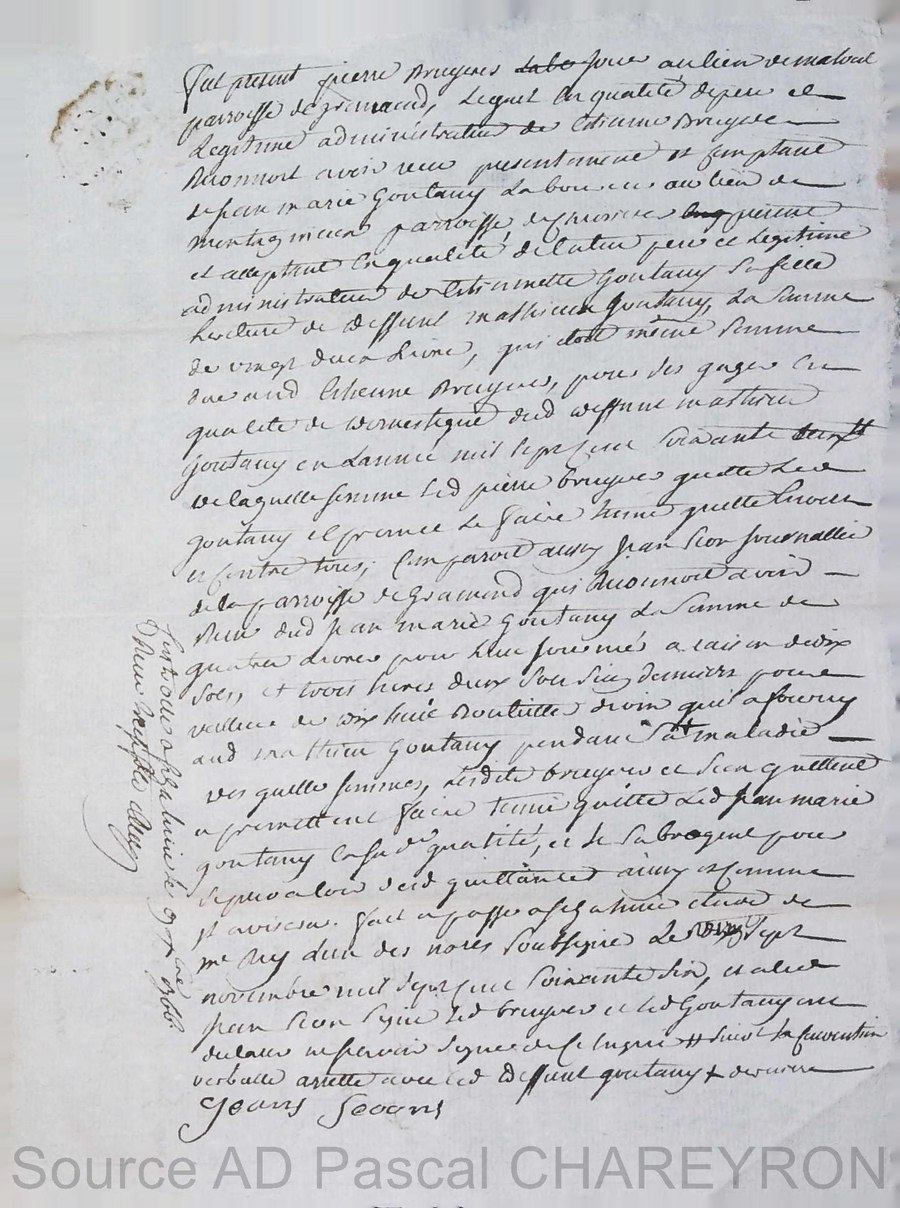 fut présent pierre Bruyeres labo joue au lieu de malval
parroisse de gramand, Lequel En qualité de pere et
Legitime administrateur de Etienne Bruyere
Reconnoit avoir recu presentement et comptant
de jean marie Goutany Laboureur au lieu de
montagnieu parroisse de
et acceptant En qualité de pere et Legitime
administrateur de Etiennette Goutany Sa fille
heritiere de deffunt mathieu Goutany, La Somme
de vingt deux Livre, qui doit même Somme
due aud Etienne Bruyeres, pour des gages En
qualité de domestique dud deffunt mathieu
Goutany en Lannée mil sept cent soixante
de laquelle somme Led pierre bruyere quitte Led
goutany et promet Le faire tenir quitte Envers
et contre tous; Comparoit aussy jean Seon journallier
de la parroisse de Gramond qui Reconnoit avoir
Receu dud jean marie Goutany La Somme de
quatre Livres pour huit journées a raison de dix
sols, et trois livres deux sols six deniers pour
valleur de dix huit Bouteille de vin qu'il a fourny
aud mathieu Goutany pendant Sa maladie
des quelle sommes, Lesdits bruyere et Seon quittent
et promettent faire tenir quitte Led jean marie
goutany En sa de qualité, et
se prevaloir desd quittances ainsy et Comme
Il avisera. fait et passé a étude de
me Rey L'un des nores Soussigné Le sept
novembre mil sept cent Soixante Six, et a Led
jean Seon Signé Led bruyere et led Goutany ont
declaré ne scavoir signer de ce enquis # suivt la convention
verballe arretté avec led deffunt goutany +
Jeans Seoons
9bre 1766